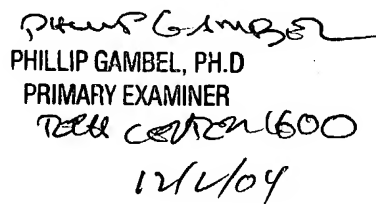 Phillip Gambel
PHILLIP GAMBEL, PH.D
PRIMARY EXAMINER
Tech Center 1600
12/2/04